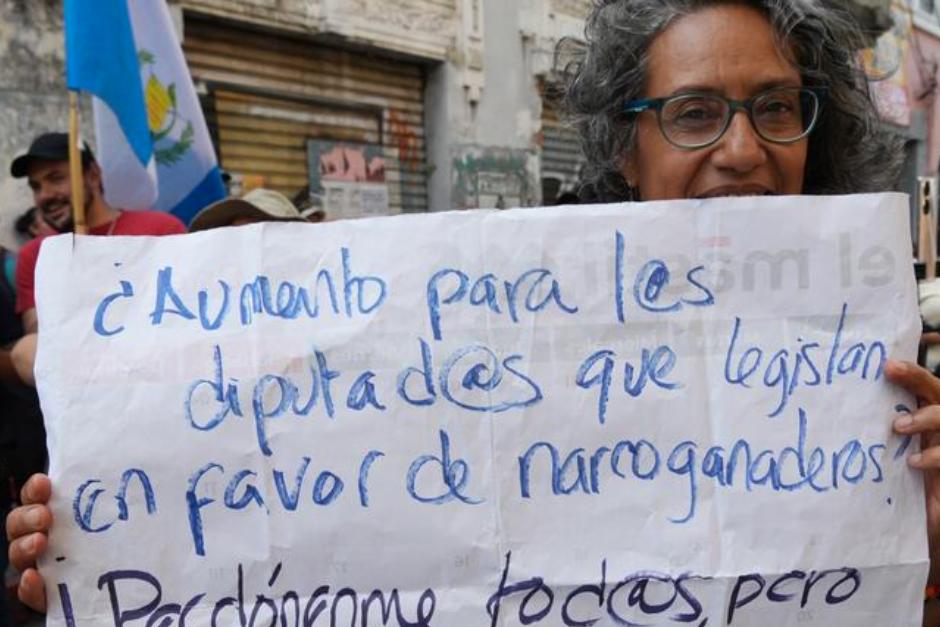 ¿Aumento para l@s
diputad@s que legislan
en favor de narcoganaderos?
¡Perdónenme tod@s, pero